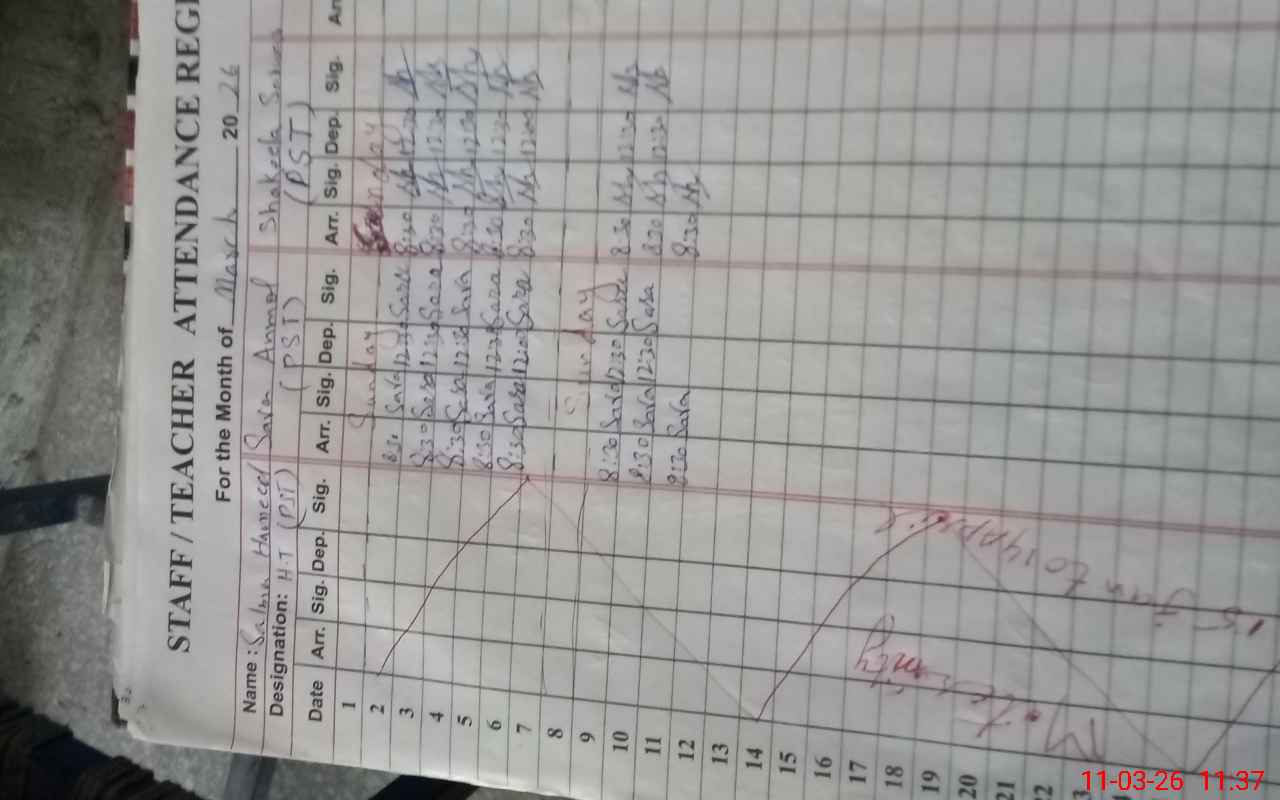 STAFF / TEACHER ATTENDANCE REGI
For the Month of March 20 26
Name : Salma Hameed Sara Anmol Shakeela
Designation: H.T (PST) (PST) (PST)
Date Arr. Sig. Dep. Sig. Arr. Sig. Dep. Sig. Arr. Sig. Dep. Sig. Arr
1 Sunday Sunday
2 8:30 Sara 12:30 Sara 8:30 12:30
3 8:30 Sara 12:30 Sara 8:30 12:30
4 8:30 Sara 12:30 Sara 8:30 12:30
5 8:30 Sara 12:30 Sara 8:30 12:30
6 8:30 Sara 12:00 Sara 8:30 12:00
7
8 Sunday
9 8:30 Sara 12:30 Sara 8:30 12:30
10 8:30 Sara 12:30 Sara 8:30 12:30
11 8:30 Sara 8:30
12
13
14
15
16
17
18
19
20
21
22
Maternity
15 Jan to 14 April
11-03-26 11.37